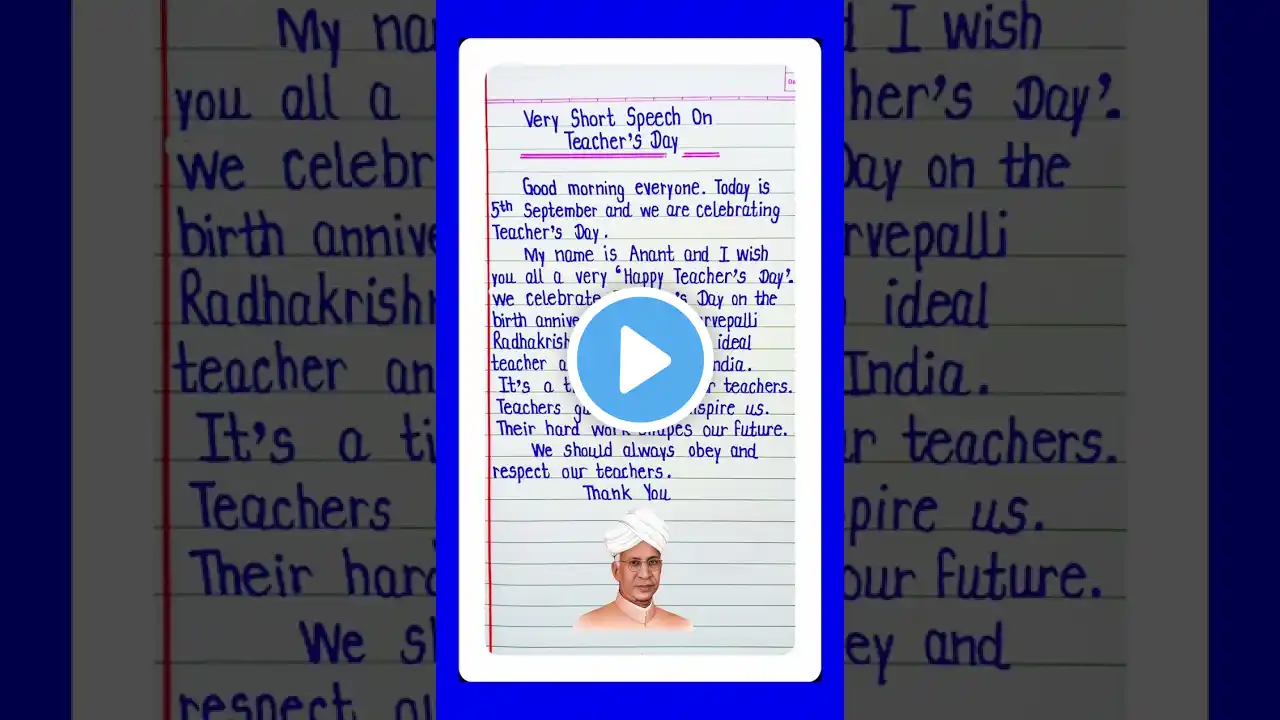 Very Short Speech On
Teacher's Day
Good morning everyone. Today is
5th September and we are celebrating
Teacher's Day.
My name is Anant and I wish
you all a very 'Happy Teacher's Day'.
we celebrate Day on the
birth
ideal
teacher India.
It's a teachers.
Teachers inspire us.
Their hard work shapes our future.
We should always obey and
respect our teachers.
Thank You